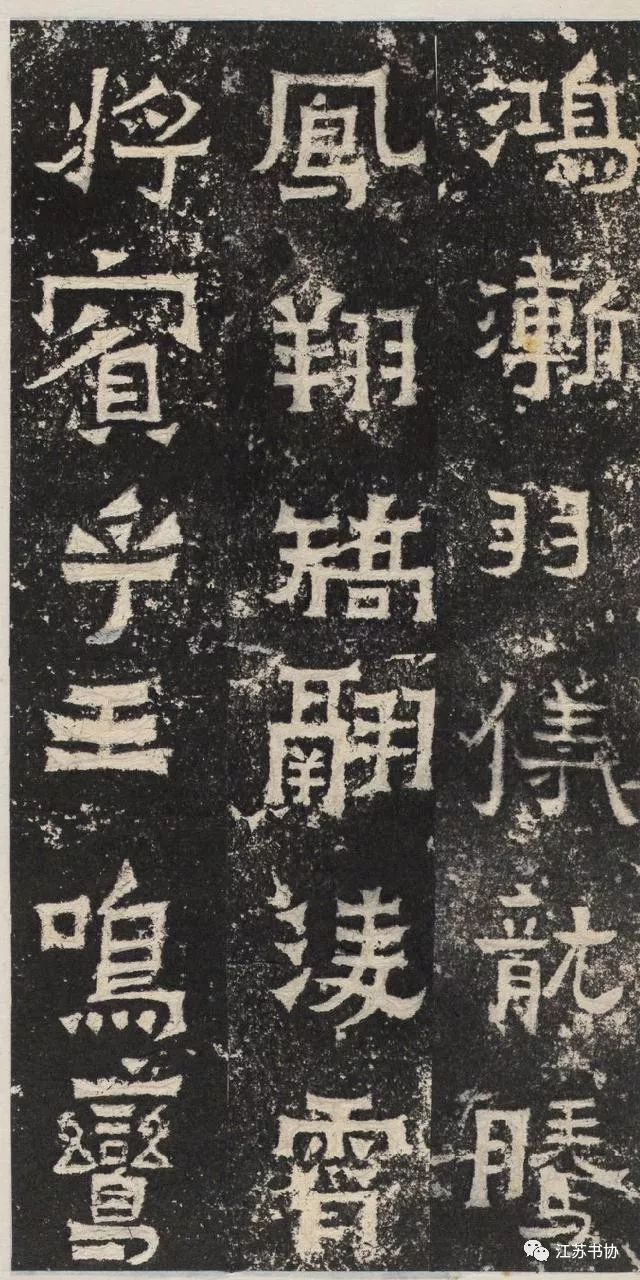 鴻漸羽儀龍騰
鳳翔矯翮淩霄
將賓乎王鳴鸞
江苏书协